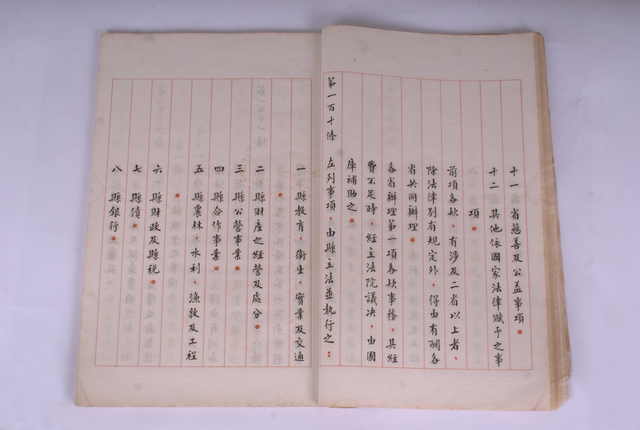 十一 省慈善及公益事項。
十二 其他依國家法律賦予之事
項。
前項各款，有涉及二省以上者，
除法律別有規定外，得由有關各
省共同辦理。
各省辦理第一項各款事務，其經
費不足時，經立法院議決，由國
庫補助之。
第一百十條 左列事項，由縣立法並執行之：
一 縣教育，衛生，實業及交通
。
二 縣財產之經營及處分。
三 縣公營事業。
四 縣合作事業。
五 縣農林，水利，漁牧及工程
。
六 縣財政及縣稅。
七 縣債。
八 縣銀行。